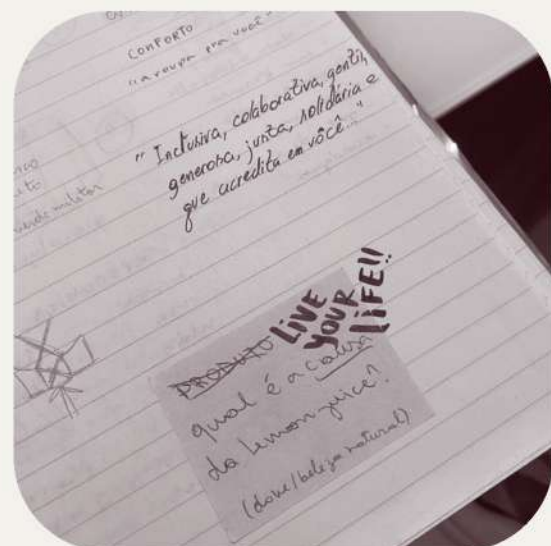 CONFORTO
"a roupa pra você"
" Inclusiva, colaborativa, gentil,
generosa, justa, solidária e
que acredita em você..."
verde militar
LIVE
YOUR
LIFE!!
PRODUTO
qual é a causa
da lemon juice?
(dove/beleza natural)